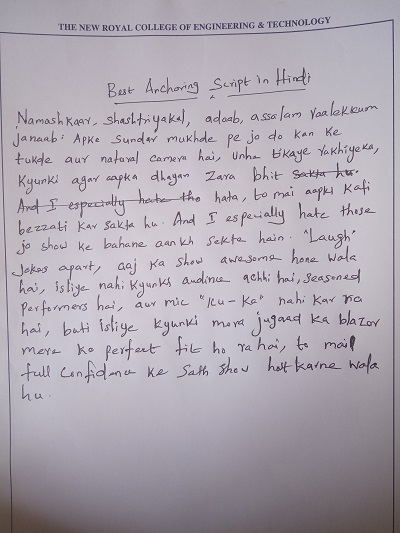 THE NEW ROYAL COLLEGE OF ENGINEERING & TECHNOLOGY
Best Anchoring Script In Hindi
Namashkaar, shashtriyakal, adaab, assalam vaalekkum
janaab! Apke sundar mukhde pe jo do kan ke
tukde aur natural camera hai, unhe tikaye rakhiyeka,
Kyunki agar aapka dhayan zara bhit sakta hu.
And I especially hate tho hata, to mai aapki kafi
bezzati kar sakta hu. And I especially hate those
jo show ke bahane aankh sekte hain. "Laugh"
Jokes apart, aaj ka show awesome hone wala
hai, isliye nahi kyunki audince achhi hai, seasoned
performers hai, aur mic "ku-ka" nahi kar ra
hai, balti isliye kyunki mera jugaad ka blazor
mere ko perfect fit ho ra hai, to mail
full confidence ke sath show hot karne wala
hu.